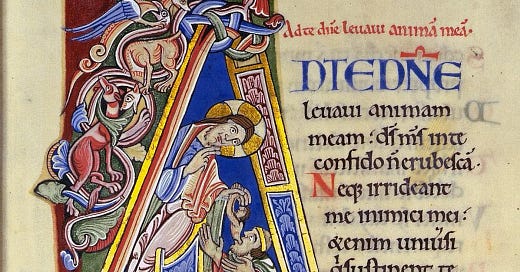 Ad te dñe levavi animã meã.
DTEDÑE
levavi animam
meam: ds̄ m̄s inte
confido ñ erubescã.
Neq; irrideant
me inimici mei:
&enim univsi
qͥ sustinent te